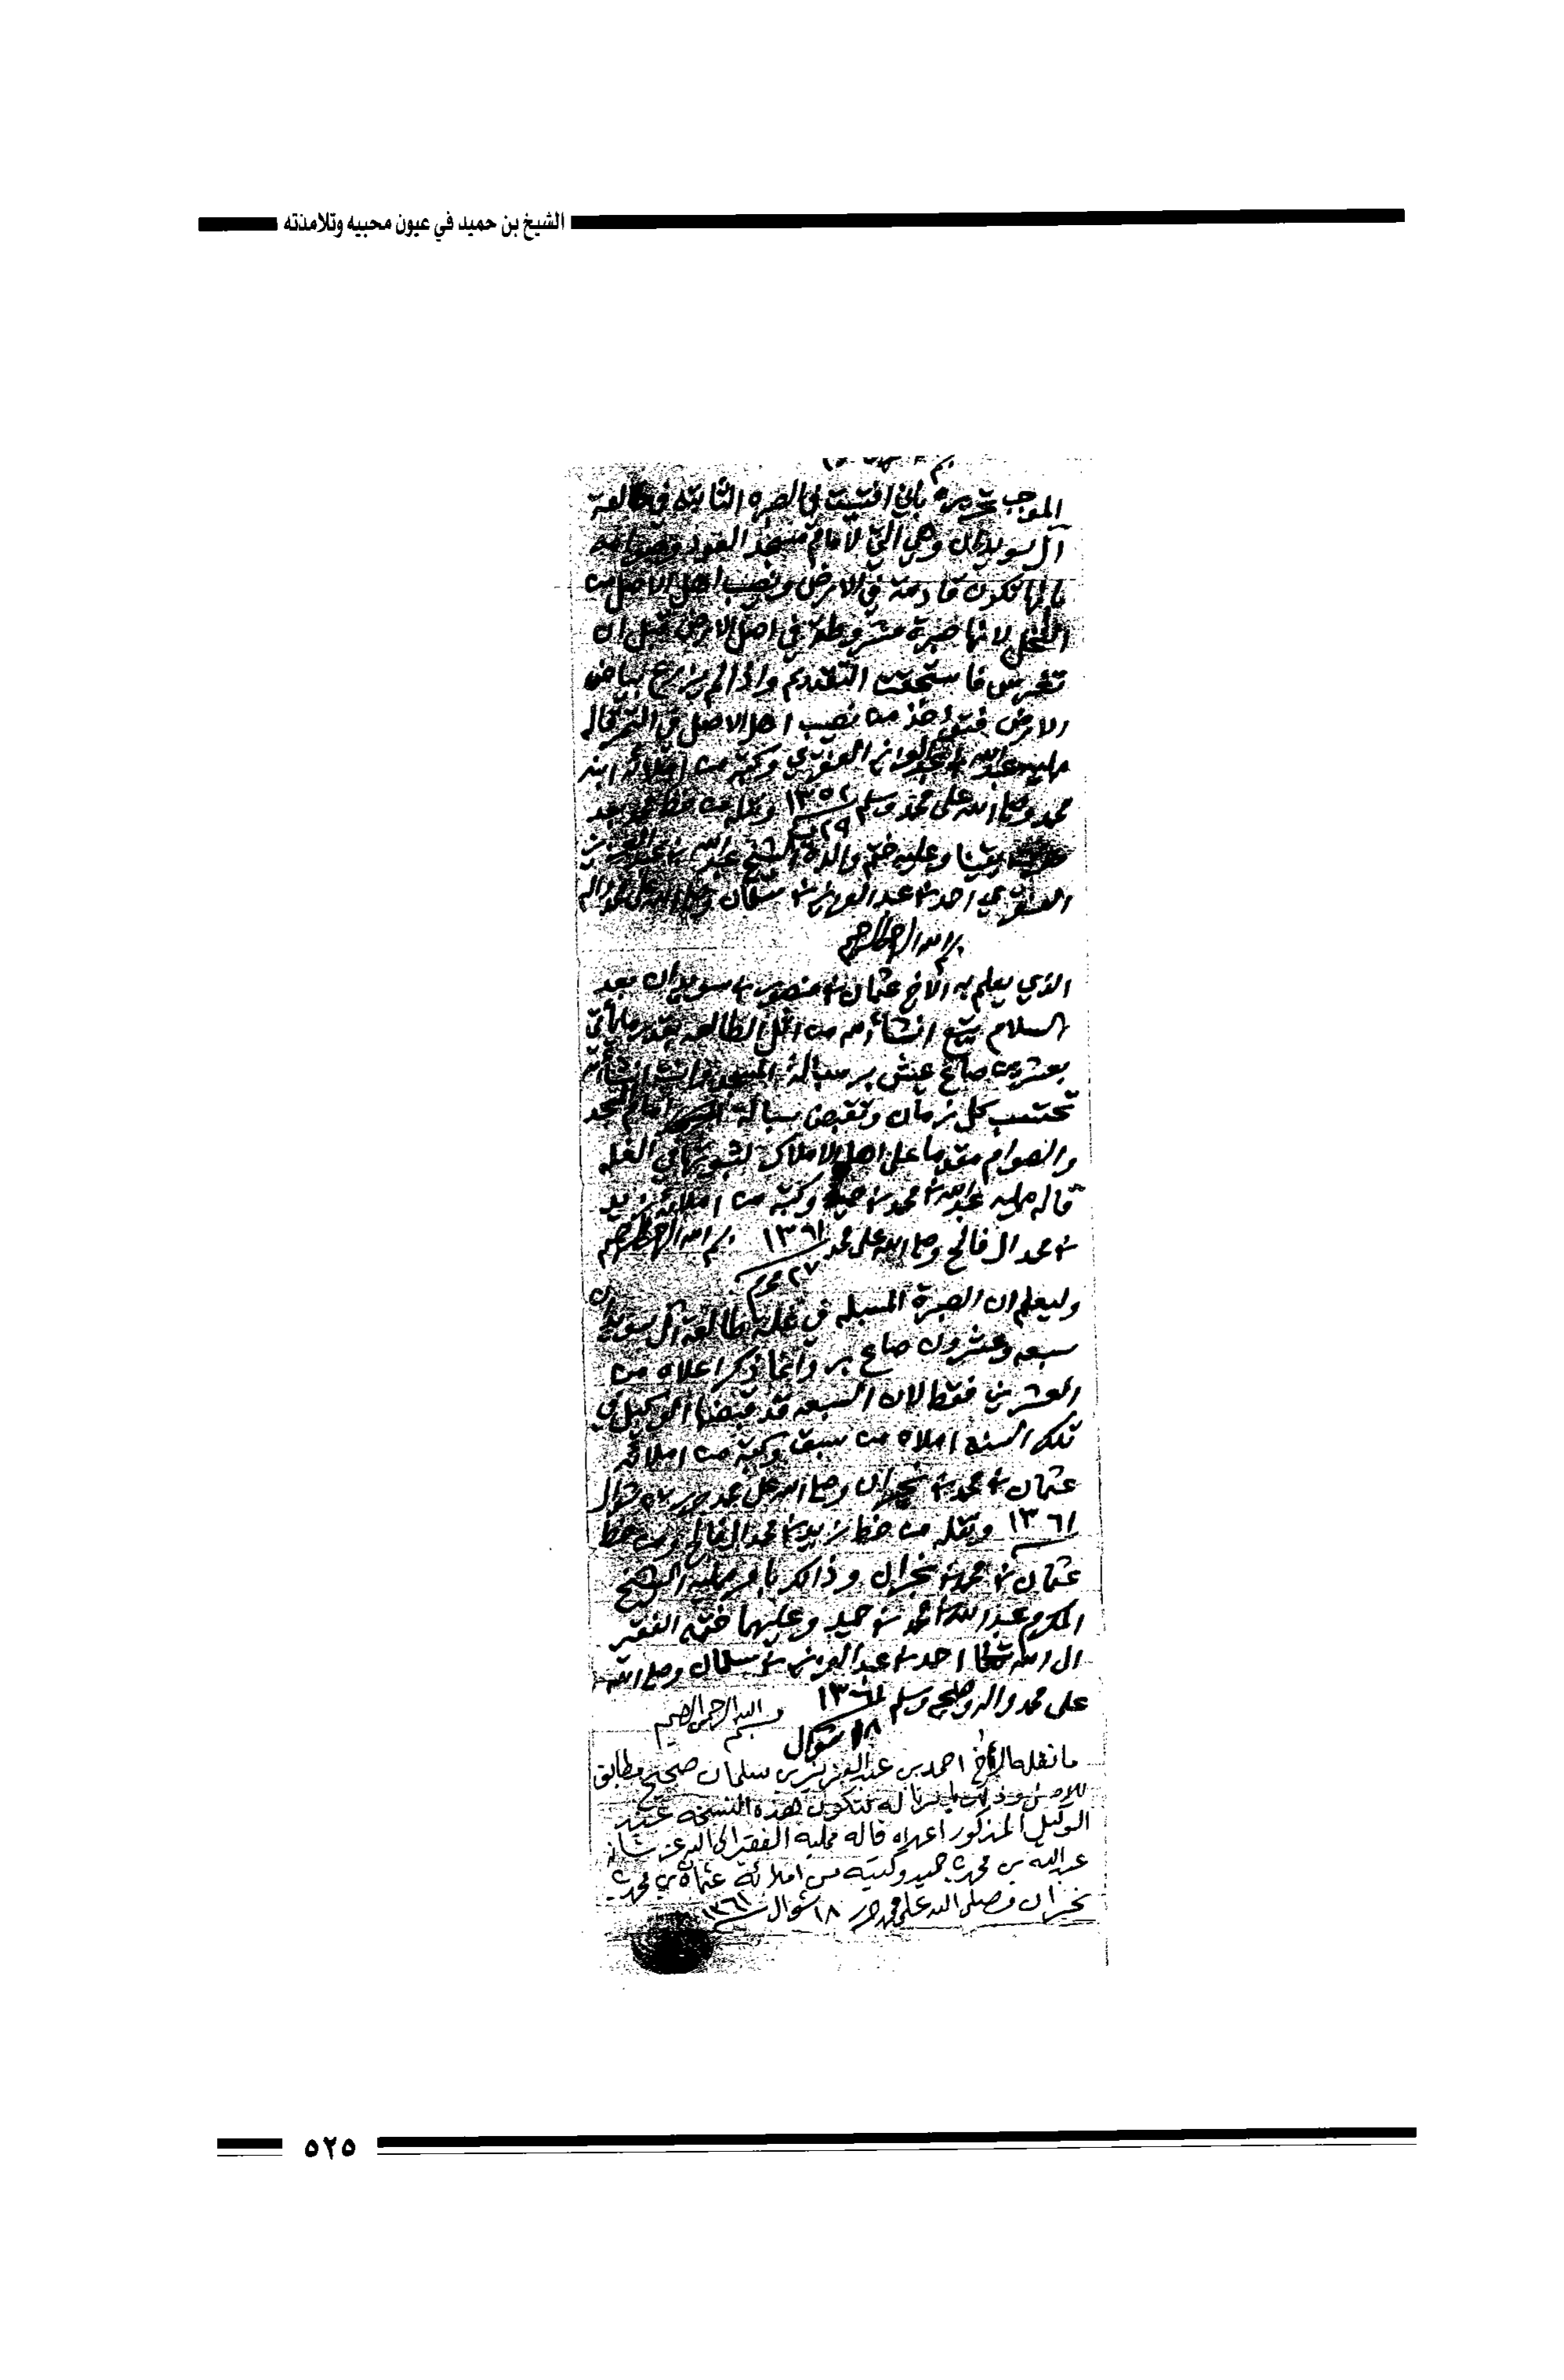 الشيخ بن حميد في عيون محبيه وتلامذته
الموجب تحريره بأني افتيت في الصبره الثابته في طالعة
آل سويدان وهي التي لامام مسجد العود وصوامه
بانها تكون قادمة في الارض ونصيب اهل الاصل من
النخل لانها صبرة مشروطة في اصل الارض قبل ان
تغرس فاستحقت التقديم واذا لم يزرع بياض
الارض فتؤخذ من نصيب اهل الاصل في التمر قاله
ممليه عبدالله بن عبدالعزيز العنقري وكتبه من املائه ابنه
محمد وصلى الله على محمد وسلم ١٣٥٢ ونقله من خطه بعد
يقينا وعليه ختم والده الشيخ عبدالله بن عبدالعزيز
العنقري احمد بن عبدالعزيز بن سلمان وصلى الله على محمد واله
بسم الله الرحمن الرحيم
الذي يعلم به الاخ عثمان بن منصور بن سويدان بعد
السلام من اهل الطالعه بقدر ما يأتي
بعشرين صاع عيش بر سبالة المسجد وانت انشاءلله
تحتسب كل زمان وتقبض سبالة امام المسجد
والصوام مقدما على اهل الاملاك لثبوتها في الغله
قاله ممليه عبدالله بن محمد بن حميد وكتبه من املائه زيد
بن محمد ال فالح وصلى الله على محمد ١٣٦١ بسم الله الرحمن الرحيم
٢٧ محرم
وليعلم ان الصبرة المسبله في غلة طالعة آل سويدان
سبعه وعشرون صاع بر وانما ذكر اعلاه من
العشرين فقط لان السبعه قد قبضها الوكيل في
تلك السنه املاه من سبق وكتبه من املائه
عثمان بن محمد بن نجران وصلى الله على محمد حرر شوال
١٣٦١ ونقله من خط زيد بن محمد ال فالح ومن خط
عثمان بن محمد بن نجران وذالك بامر ممليه الشيخ
المكرم عبدالله بن محمد بن حميد وعليهما ختمه الفقير
الى الله تعالى احمد بن عبدالعزيز بن سلمان وصلى الله
على محمد واله وصحبه وسلم ١٣٦١ بسم الله الرحمن الرحيم
١٨ شوال
ما نقله الأخ احمد بن عبدالعزيز بن سلمان صحيح مطابق
للاصل وذلك بامرنا له لتكون هذه النسخه عند
الوكيل المذكور اعلاه قاله ممليه الفقير الى الله عز شانه
عبدالله بن محمد بن حميد وكتبه من املائه عثمان بن محمد بن
نجران وصلى الله على محمد حرر ١٨ شوال ١٣٦١
٥٢٥